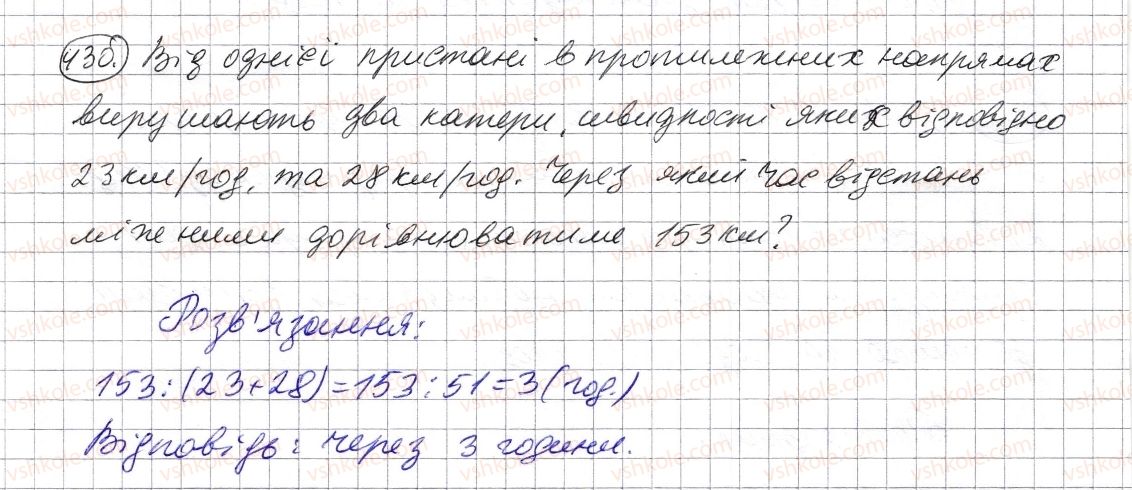 430. Від однієї пристані в протилежних напрямах
вирушають два катери, швидкості яких відповідно
23 км/год, та 28 км/год. Через який час відстань
між ними дорівнюватиме 153 км?
Розв'язання:
153:(23+28)=153:51=3(год.)
Відповідь: через 3 години.